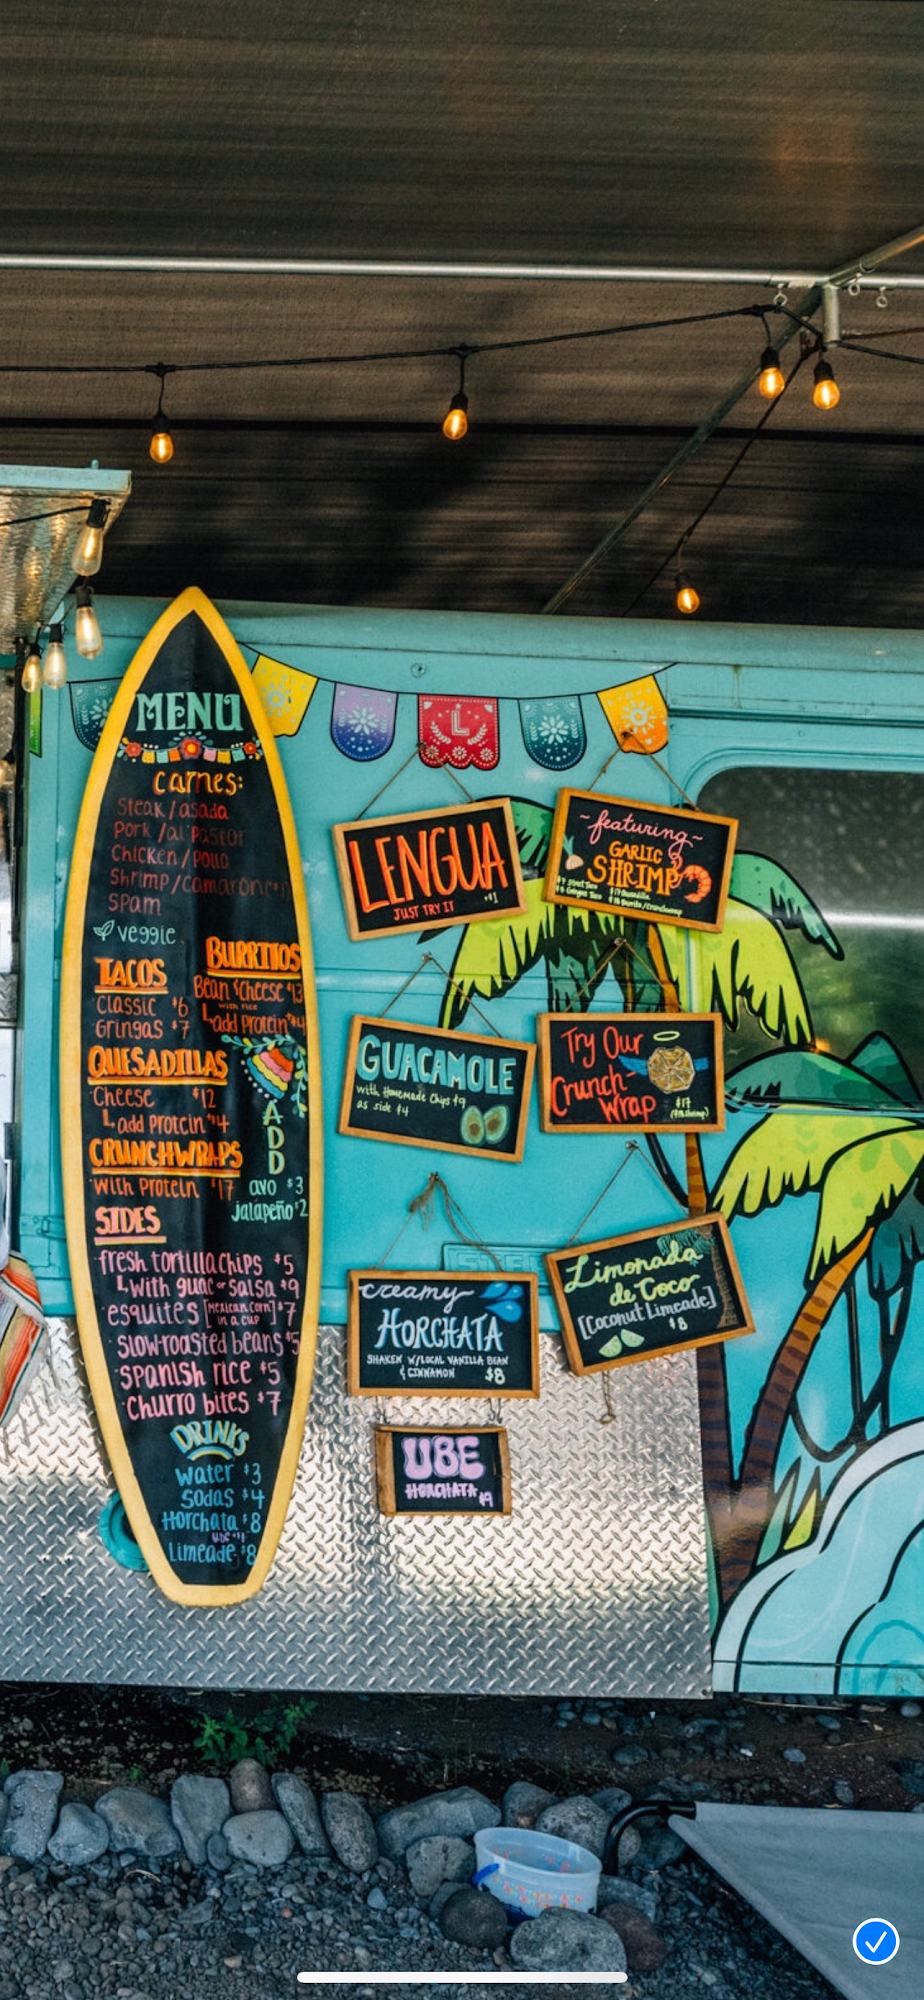 MENU
carnes:
Steak/asada
Pork/al Pastor
Chicken/pollo
Shrimp/camaron
Spam
veggie
TACOS
Classic $6
Gringas $7
BURRITOS
Bean & Cheese $13
with rice
add Protein $4
QUESADILLAS
Cheese $12
add Protein $4
CRUNCHWRAPS
With Protein $17
ADD
avo $3
jalapeño $2
SIDES
fresh tortilla chips $5
With guac or salsa $9
esquites [Mexican Corn in a cup] $7
slow-roasted beans $5
spanish rice $5
churro bites $7
DRINKS
water $3
sodas $4
Horchata $8
ube +$1
Limeade $8
L
LENGUA
JUST TRY IT +$1
~featuring~
GARLIC
SHRIMP
GUACAMOLE
with Homemade Chips $9
as side $4
Try Our
Crunch-
Wrap
$17
creamy
HORCHATA
SHAKEN W/LOCAL VANILLA BEAN
& CINNAMON $8
Limonada
de Coco
[Coconut Limeade]
$8
UBE
HORCHATA $9